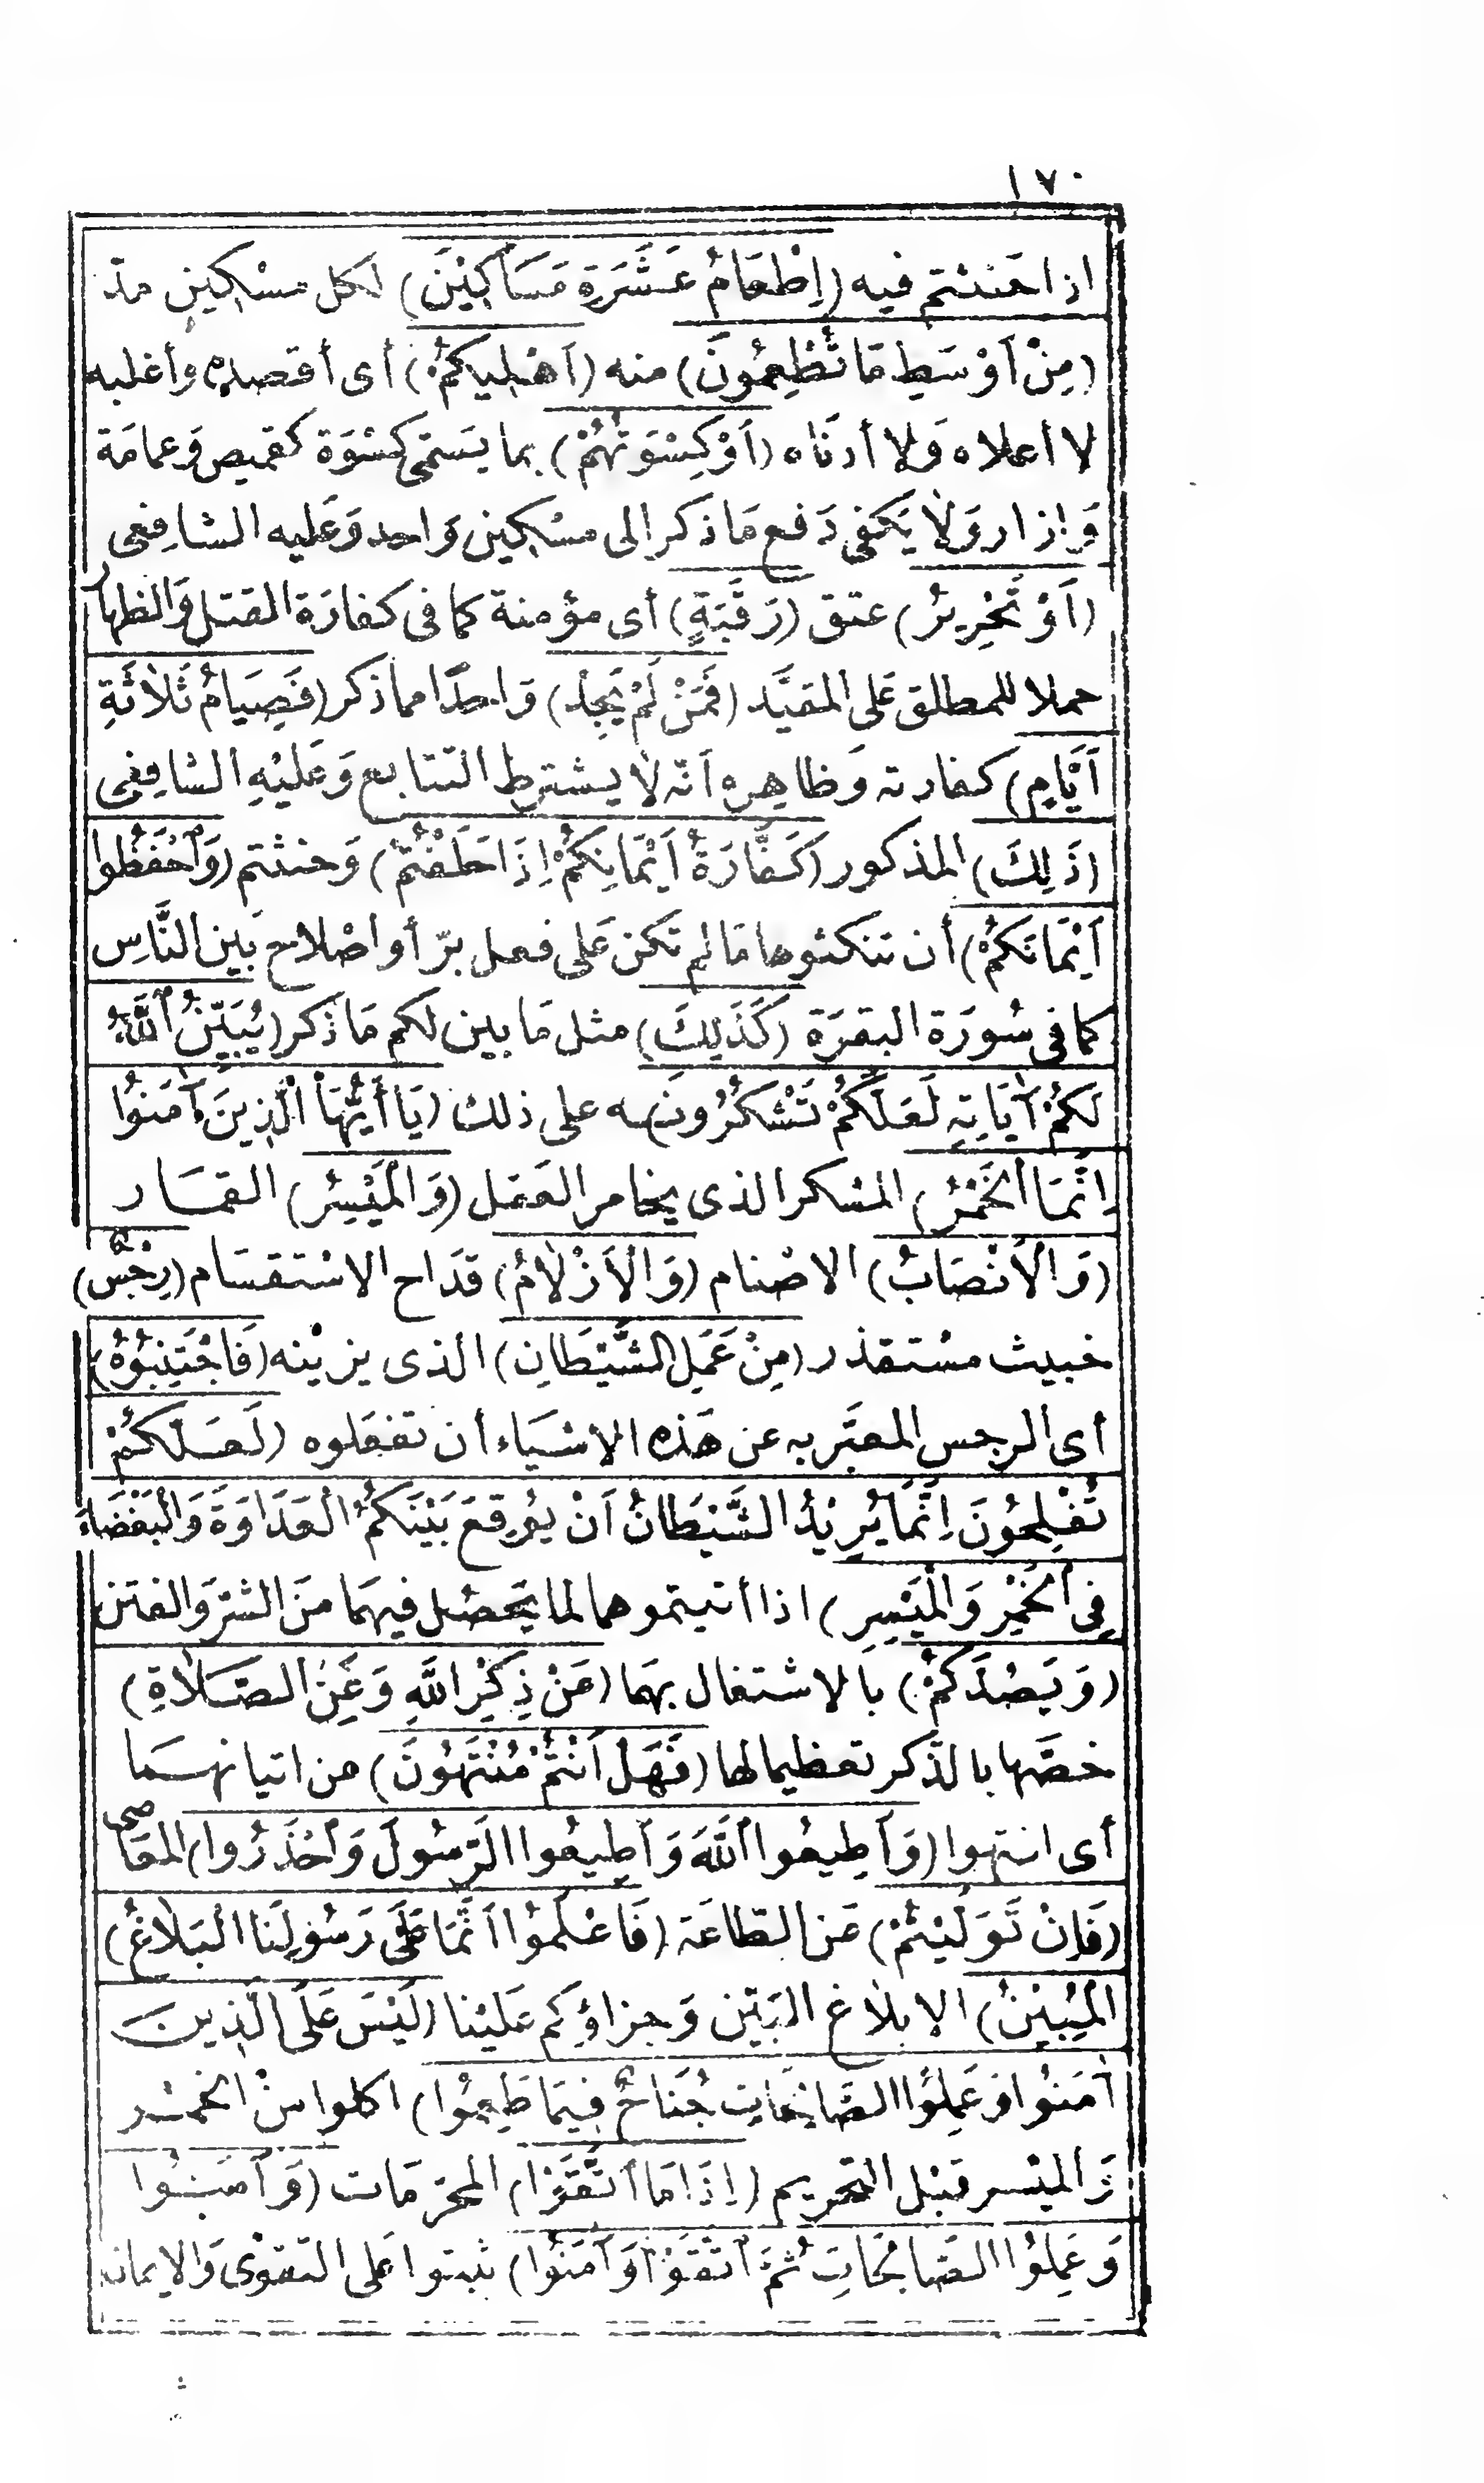 ١٧٠
اذا حنثتم فيه (اِطْعَامُ عَشَرَةِ مَسَاكِيْنَ) لكل مسْكين مدّ
(مِنْ اَوْسَطِ مَا تُطْعِمُونَ) منه (اَهْلِيكُمْ) أى أقصده وأغلبه
لا أعلاه وَلا أدنَاه (اَوْ كِسْوَتُهُمْ) بما يسَمّى كسْوَة كقميص وَعمامَة
وَإزار وَلَا يَكفى دَفع مَا ذكر الى مسْكين وَاحد وَعَليه الشافِعى
(اَوْ تَحْرِيرُ) عتق (رَقَبَةٍ) أى مؤمنة كما فى كفارَة القتل وَالظهار
حملا للمطلق عَلى المقيَّد (فَمَنْ لَمْ يَجِدْ) وَاحدًا مما ذكر (فَصِيَامُ ثَلَاثَةِ
اَيَّامٍ) كفارته وَظاهِره اَنّه لَا يشترط التتابع وَعَليْهِ الشافِعى
(ذَلِكَ) المذكور (كَفَّارَةُ اَيْمَانِكُمْ اِذَا حَلَفْتُمْ) وَحنثتم (وَاحْفَظُوا
اَيْمَانَكُمْ) أن تنكثوها مَا لم تَكن عَلى فعل برّ أو اصْلاح بَين النَّاسِ
كما فى سُورَة البقرَة (كَذَلِكَ) مثل مَا بين لكم مَا ذكر (يُبَيِّنُ اللَّهُ
لَكُمْ اَيَاتِهِ لَعَلَّكُمْ تَشْكُرُونَ) ـه على ذلك (يَا أَيُّهَا الَّذِينَ آمَنُوا
اِنَّمَا الْخَمْرُ) المسْكر الذى يخامر العَقل (وَالْمَيْسِرُ) القمَار
(وَالْاَنْصَابُ) الاصْنام (وَالْاَزْلَامُ) قدَاح الاسْتقسَام (رِجْسٌ)
خبيث مسْتقذر (مِنْ عَمَلِ الشَّيْطَانِ) الذى يزيْنه (فَاجْتَنِبُوهُ)
أى الرجس المعَبَّر به عن هَذه الاشيَاء أن تفعَلوه (لَعَلَّكُمْ
تُفْلِحُونَ اِنَّمَا يُرِيْدُ الشَّيْطَانُ اَنْ يُوقِعَ بَيْنَكُمُ الْعَدَاوَةَ وَالْبَغْضَاءَ
فِى الْخَمْرِ وَالْمَيْسِرِ) اذا أتيتموهما لما يَحصُل فيهمَا منَ الشرّ وَالفتن
(وَيَصُدَّكُمْ) بالاشتغال بهمَا (عَنْ ذِكْرِ اللَّهِ وَعَنِ الصَّلَاةِ)
خصّها بالذّكر تعظيما لها (فَهَلْ اَنْتُمْ مُنْتَهُونَ) عن اتيانهـمَا
أى انتهوا (وَاَطِيعُوا اللَّهَ وَاَطِيعُوا الرَّسُولَ وَاحْذَرُوا) المعَاصى
(فَاِنْ تَوَلَّيْتُمْ) عَن الطّاعَة (فَاعْلَمُوا اَنَّمَا عَلَى رَسُولِنَا الْبَلَاغُ)
الْمُبِيْنُ) الإبلَاغ البَيّن وَجزاؤكم عَليْنا (لَيْسَ عَلَى الَّذِينَ
اٰمَنُوا وَعَمِلُوا الصَّالِحَاتِ جُنَاحٌ فِيمَا طَعِمُوا) اكلوا منْ الخمْـر
وَالميْسر قبْل التحْريم (اِذَا مَا اتَّقَوْا) المحرّمَات (وَآمَنُوا
وَعَمِلُوا الصَّالِحَاتِ ثُمَّ اتَّقَوْا وَآمَنُوا) ثبتوا عَلى التقوٰى وَالايمان